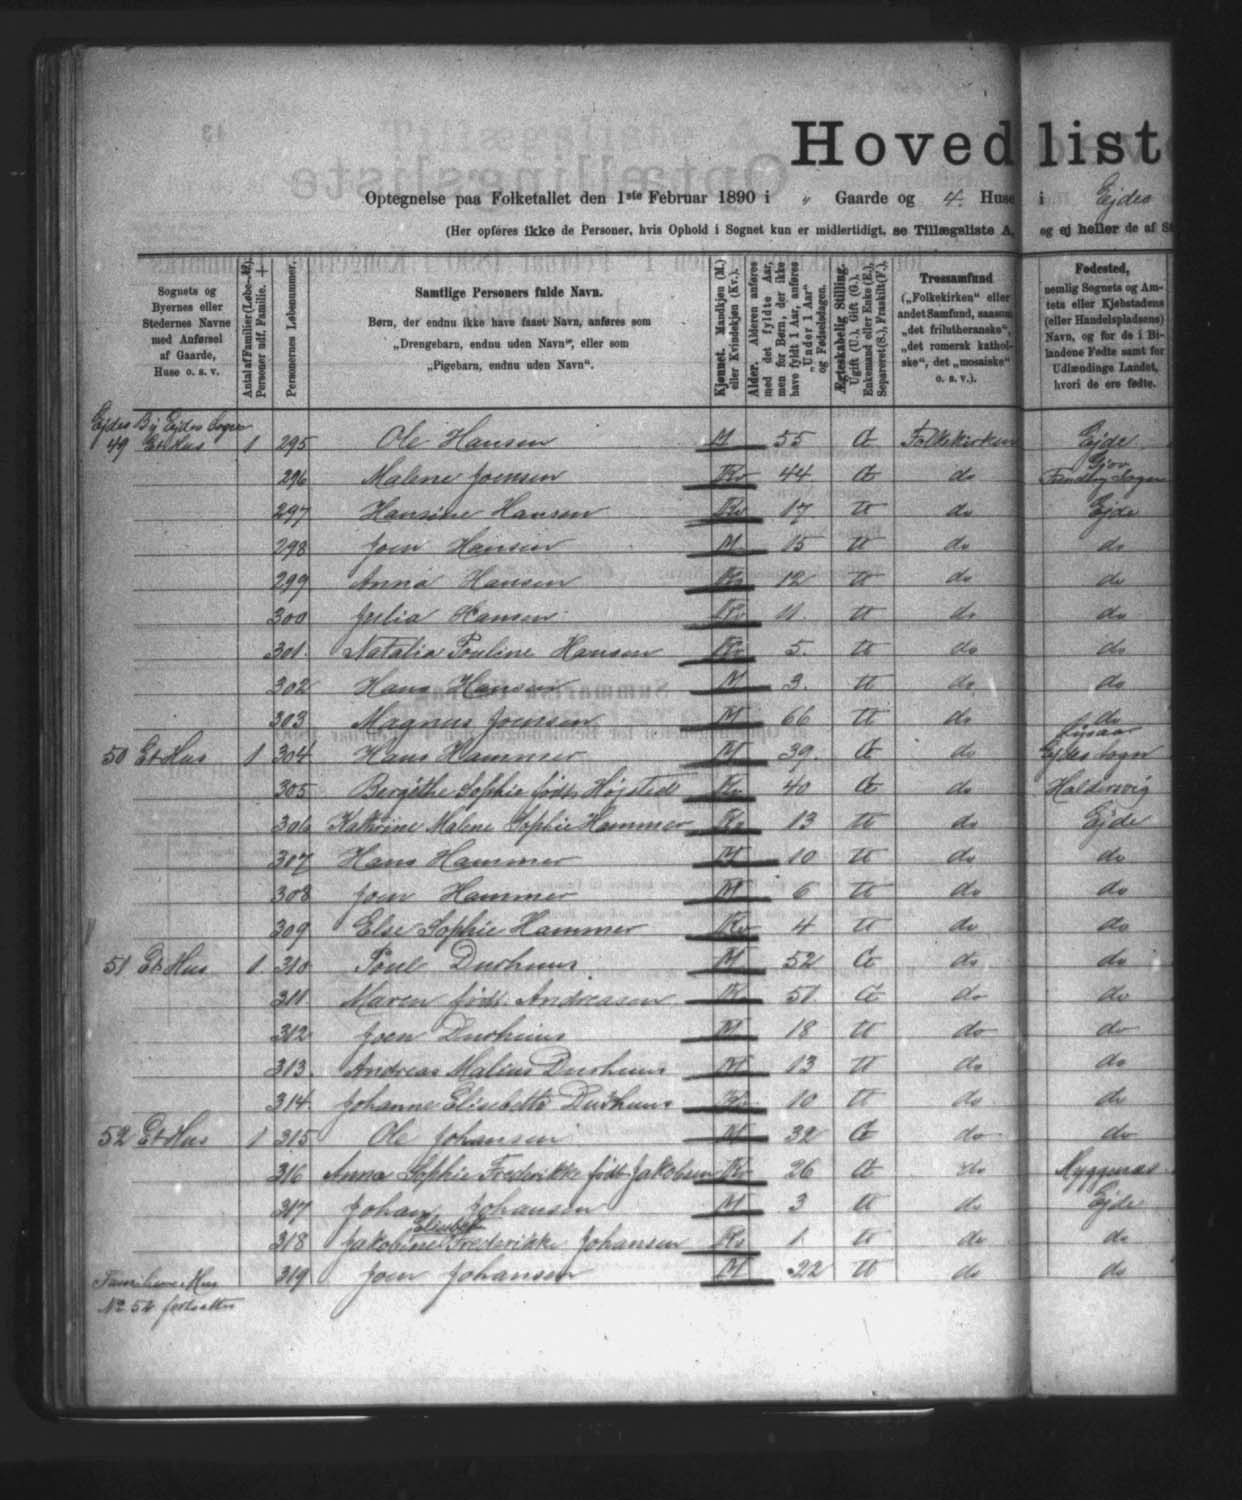 Hovedlist
Optegnelse paa Folketallet den 1ste Februar 1890 i " Gaarde og 4 Huse i Ejdes
(Her opføres ikke de Personer, hvis Ophold i Sognet kun er midlertidigt, se Tillægsliste A, og ej heller de af S
Sognets og Byernes eller Stedernes Navne med Anførsel af Gaarde, Huse o. s. v.
Antal af Familier (Løbe-№). Personer udf. Familie. +
Personernes Løbenummer.
Samtlige Personers fulde Navn.
Børn, der endnu ikke have faaet Navn, anføres som
„Drengebarn, endnu uden Navn“, eller som
„Pigebarn, endnu uden Navn“.
Kjønnet. Mandkjøn (M.) eller Kvindekjøn (Kv.).
Alder. Alderen anføres med det fyldte Aar, men for Børn, der ikke have fyldt 1 Aar, anføres „Under 1 Aar“ og Fødselsdagen.
Ægteskabelig Stilling. Ugift (U.), Gift (G.), Enkemand eller Enke (E.), Separeret (S.), Fraskilt (F.).
Trossamfund („Folkekirken“ eller andet Samfund, saasom „det frilutheranske“, „det romersk katholske“, det „mosaiske“ o. s. v.).
Fødested, nemlig Sognets og Amtets eller Kjøbstadens (eller Handelspladsens) Navn, og for de i Bilandene Fødte samt for Udlændinge Landet, hvori de ere fødte.
Ejdes By Ejdes Sogn
49 Et Hus 1 295 Ole Hansen M 55 G Folkekirken Ejde
296 Malene Joensen Kv 44 G do Gjov Sogn
297 Hansine Hansen Kv 17 U do Ejde
298 Joen Hansen M 15 U do do
299 Anna Hansen Kv 12 U do do
300 Julia Hansen Kv 11 U do do
301 Natalia Pouline Hansen Kv 5 U do do
302 Hans Hansen M 3 U do do
303 Magnus Joensen M 66 U do do
50 Et Hus 1 304 Hans Hammer M 39 G do Ejdes Sogn
305 Bergithe Sophie født Højsted Kv 40 G do Haldersvig
306 Kathrine Malene Sophie Hammer Kv 13 U do Ejde
307 Hans Hammer M 10 U do do
308 Joen Hammer M 6 U do do
309 Else Sophie Hammer Kv 4 U do do
51 Et Hus 1 310 Poul Durhuus M 52 G do do
311 Maren født Andreasen K 51 G do do
312 Joen Durhuus M 18 U do do
313 Andreas Malius Durhuus M 13 U do do
314 Johanne Elisebette Durhuus Kv 10 U do do
52 Et Hus 1 315 Ole Johansen M 32 G do do
316 Anna Sophie Frederikke født Jakobsen Kv 26 G do Myggenæs
317 Johan Johansen M 3 U do Ejde
Elisabet
318 Jakobine Frederikke Johansen Kv 1 U do do
319 Joen Johansen M 22 U do do
Familien i Hus
No 52 fortsættes